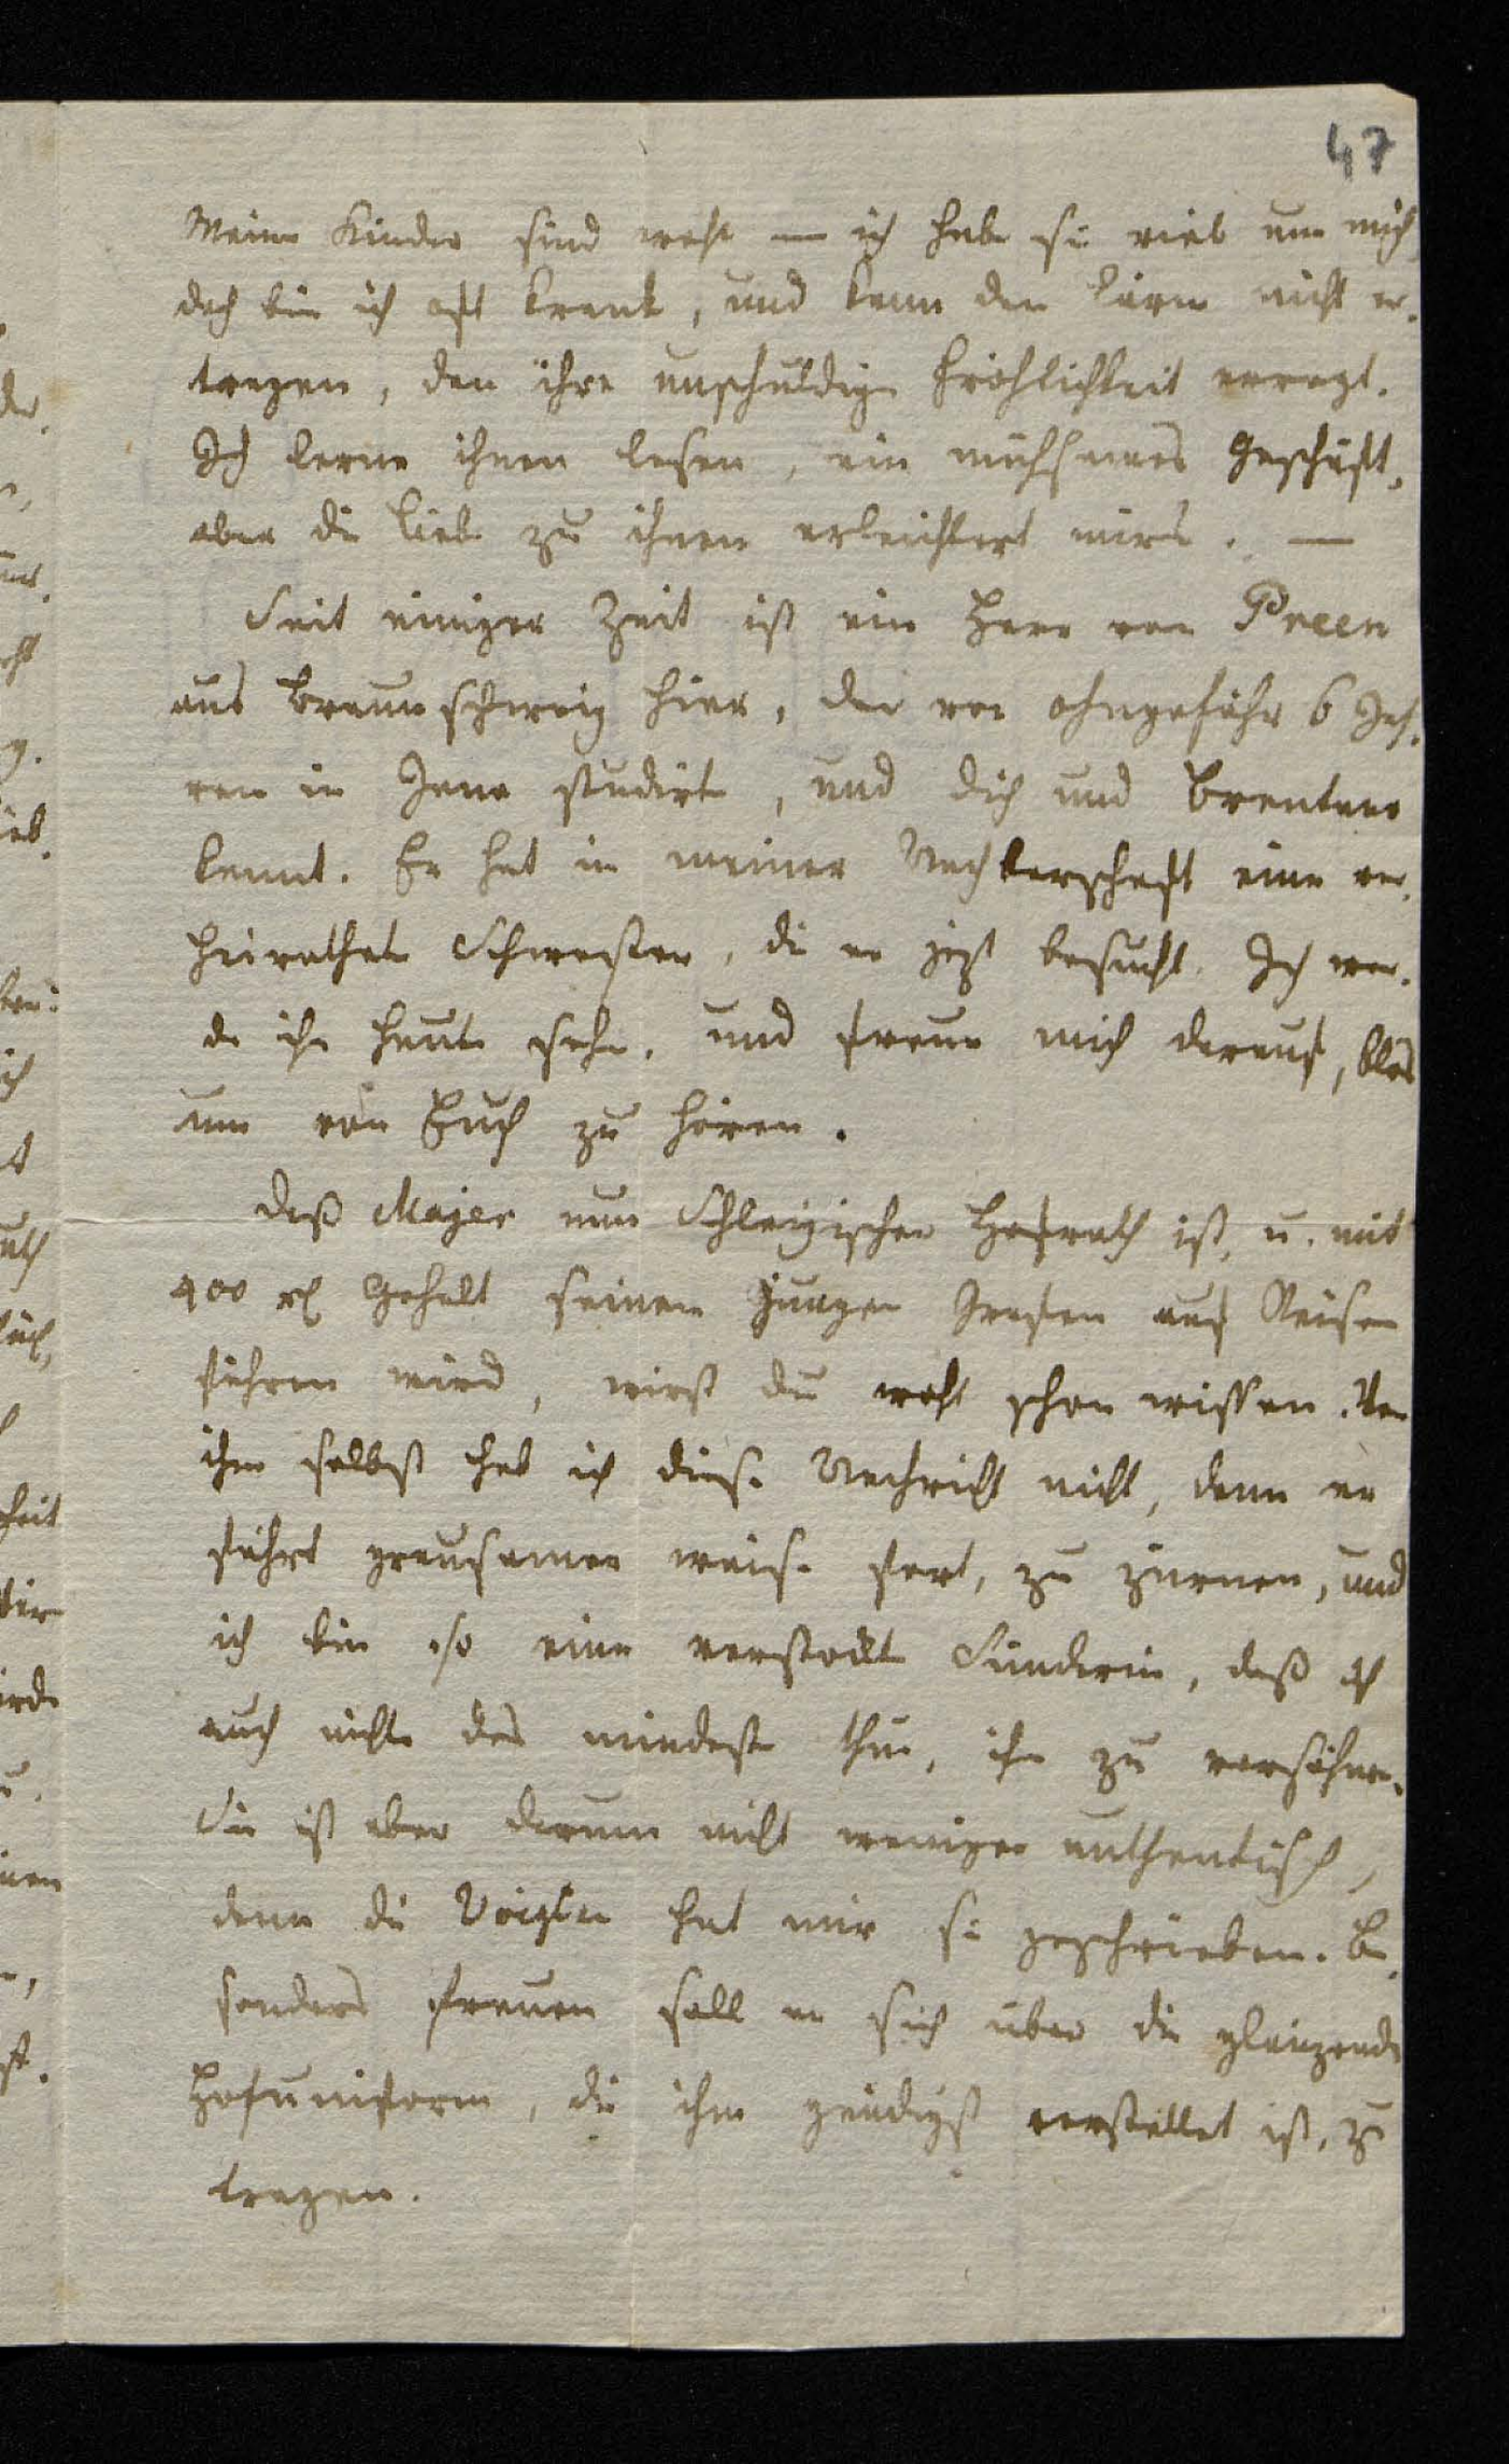 47
Meine Kinder sind wohl — ich habe sie viel um mich,
doch bin ich oft krank, und kann den Lärm nicht er-
tragen, den ihre unschuldige Fröhlichkeit erregt.
Ich lerne ihnen lesen, ein mühsames Geschäft,
aber die Liebe zu ihnen erleichtert mirs. —
Seit einiger Zeit ist ein Herr von Preen
aus Braunschweig hier, der vor ohngefähr 6 Jah-
ren in Jena studirte, und dich und Brentano
kennt. Er hat in meiner Nachbarschaft eine ver-
heirathete Schwester, die er jezt besucht. Ich wer-
de ihn heute sehn, und freue mich darauf, blos
um von Euch zu hören.
Daß Majer nun Schleizischer Hofrath ist, u. mit
400 rl Gehalt seinen jungen Grafen auf Reisen
führen wird, wirst du wohl schon wissen. Von
ihm selbst hab ich diese Nachricht nicht, denn er
fährt grausamer weise fort, zu zürnen, und
ich bin so eine verstockte Sünderin, daß ich
auch nicht das mindeste thue, ihn zu versöhnen.
Sie ist aber darum nicht weniger authentisch,
denn die Voigten hat mir sie geschrieben. Be-
sonders freuen soll er sich über die glänzende
Hofuniform, die ihm gnädigst verstattet ist, zu
tragen.